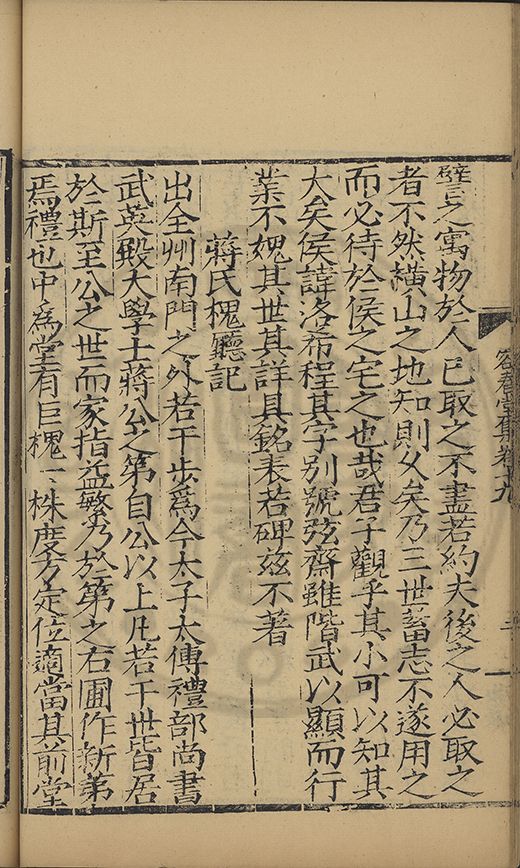 譬之寓物於人已取之不盡若約夫後之人必取之
者不然橫山之地知則久矣乃三世蓄志不遂用之
而必待於侯之宅之也哉君子觀乎其小可以知其
大矣侯諱洛希程其字別號弦齋雖階武以顯而行
業不媿其世其詳具銘表若碑兹不著
蔣氏槐廳記
出全州南門之外若干步爲今太子太傅禮部尚書
武英殿大學士蔣公之第自公以上凡若干世皆居
於斯至公之世而家指益繁乃於第之右圃作新第
焉禮也中爲堂有巨槐一株度方定位適當其前堂
容春堂集卷十九